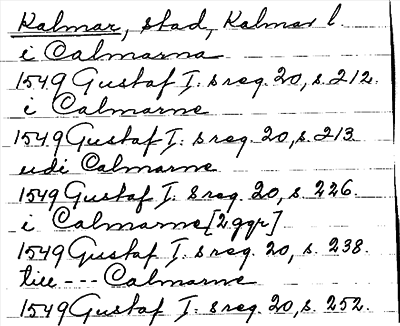 Kalmar, stad, Kalmar l.
i Calmarna
1549 Gustaf I:s reg. 20, s. 212.
i Calmarne
1549 Gustaf I:s reg. 20, s. 213.
udi Calmarne
1549 Gustaf I:s reg. 20, s. 226.
i Calmarne [2 ggr]
1549 Gustaf I:s reg. 20, s. 238.
till --- Calmarne
1549 Gustaf I:s reg. 20, s. 252.